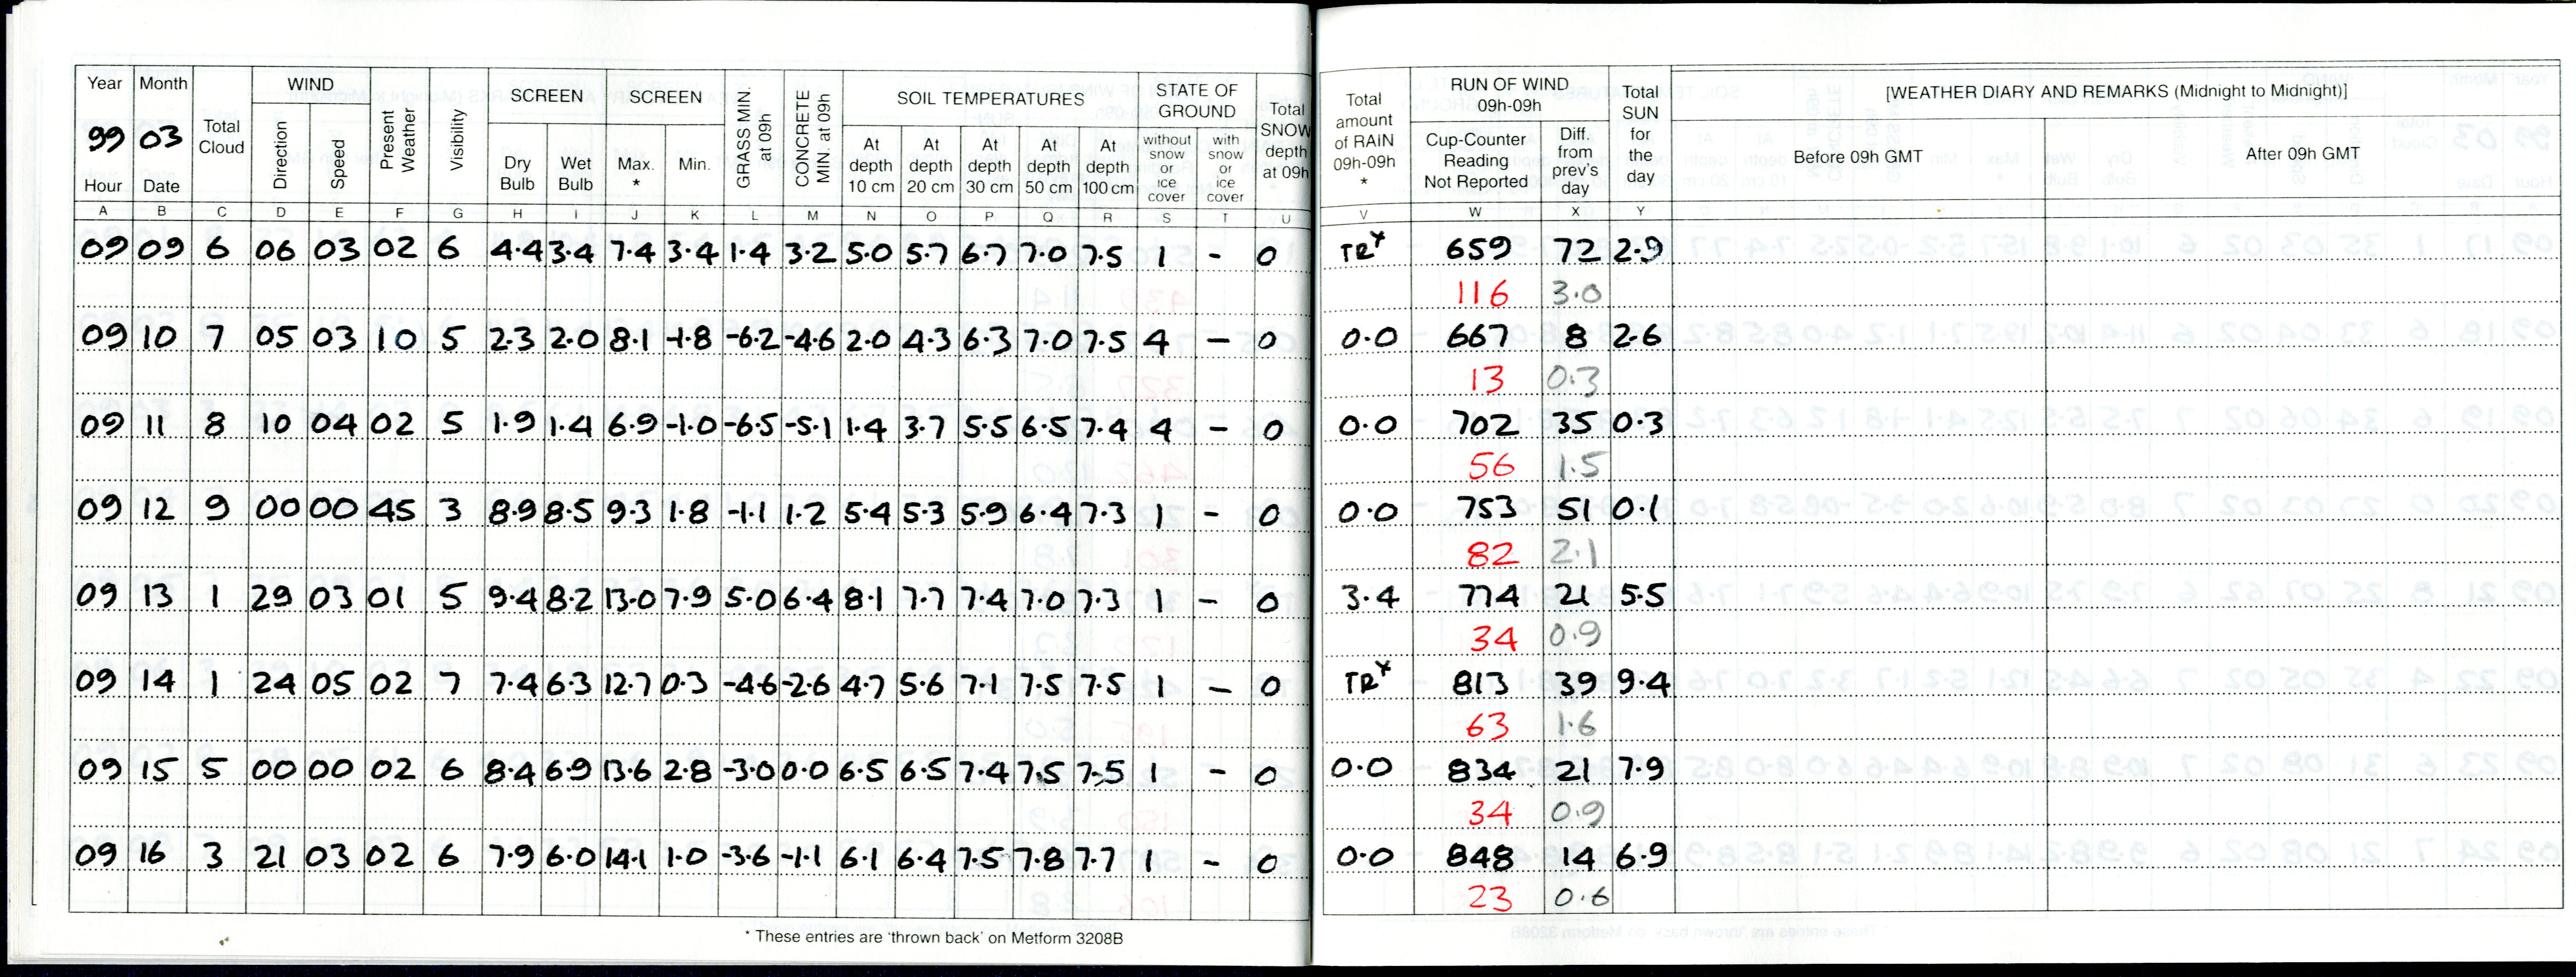 Year Month Total Cloud WIND Present Weather Visibility SCREEN SCREEN GRASS MIN. at 09h CONCRETE MIN. at 09h SOIL TEMPERATURES STATE OF GROUND Total SNOW depth at 09h Total amount of RAIN 09h-09h * RUN OF WIND 09h-09h Total SUN for the day [WEATHER DIARY AND REMARKS (Midnight to Midnight)]
99 03
Hour Date Direction Speed Dry Bulb Wet Bulb Max. * Min. At depth 10 cm At depth 20 cm At depth 30 cm At depth 50 cm At depth 100 cm without snow or ice cover with snow or ice cover Cup-Counter Reading Not Reported Diff. from prev's day Before 09h GMT After 09h GMT
A B C D E F G H I J K L M N O P Q R S T U V W X Y
09 09 6 06 03 02 6 4.4 3.4 7.4 3.4 1.4 3.2 5.0 5.7 6.7 7.0 7.5 1 - 0 TR 659 72 2.9
116 3.0
09 10 7 05 03 10 5 2.3 2.0 8.1 -1.8 -6.2 -4.6 2.0 4.3 6.3 7.0 7.5 4 - 0 0.0 667 8 2.6
13 0.3
09 11 8 10 04 02 5 1.9 1.4 6.9 -1.0 -6.5 -5.1 1.4 3.7 5.5 6.5 7.4 4 - 0 0.0 702 35 0.3
56 1.5
09 12 9 00 00 45 3 8.9 8.5 9.3 1.8 -1.1 1.2 5.4 5.3 5.9 6.4 7.3 1 - 0 0.0 753 51 0.1
82 2.1
09 13 1 29 03 01 5 9.4 8.2 13.0 7.9 5.0 6.4 8.1 7.7 7.4 7.0 7.3 1 - 0 3.4 774 21 5.5
34 0.9
09 14 1 24 05 02 7 7.4 6.3 12.7 0.3 -4.6 -2.6 4.7 5.6 7.1 7.5 7.5 1 - 0 TR 813 39 9.4
63 1.6
09 15 5 00 00 02 6 8.4 6.9 13.6 2.8 -3.0 0.0 6.5 6.5 7.4 7.5 7.5 1 - 0 0.0 834 21 7.9
34 0.9
09 16 3 21 03 02 6 7.9 6.0 14.1 1.0 -3.6 -1.1 6.1 6.4 7.5 7.8 7.7 1 - 0 0.0 848 14 6.9
23 0.6
* These entries are 'thrown back' on Metform 3208B